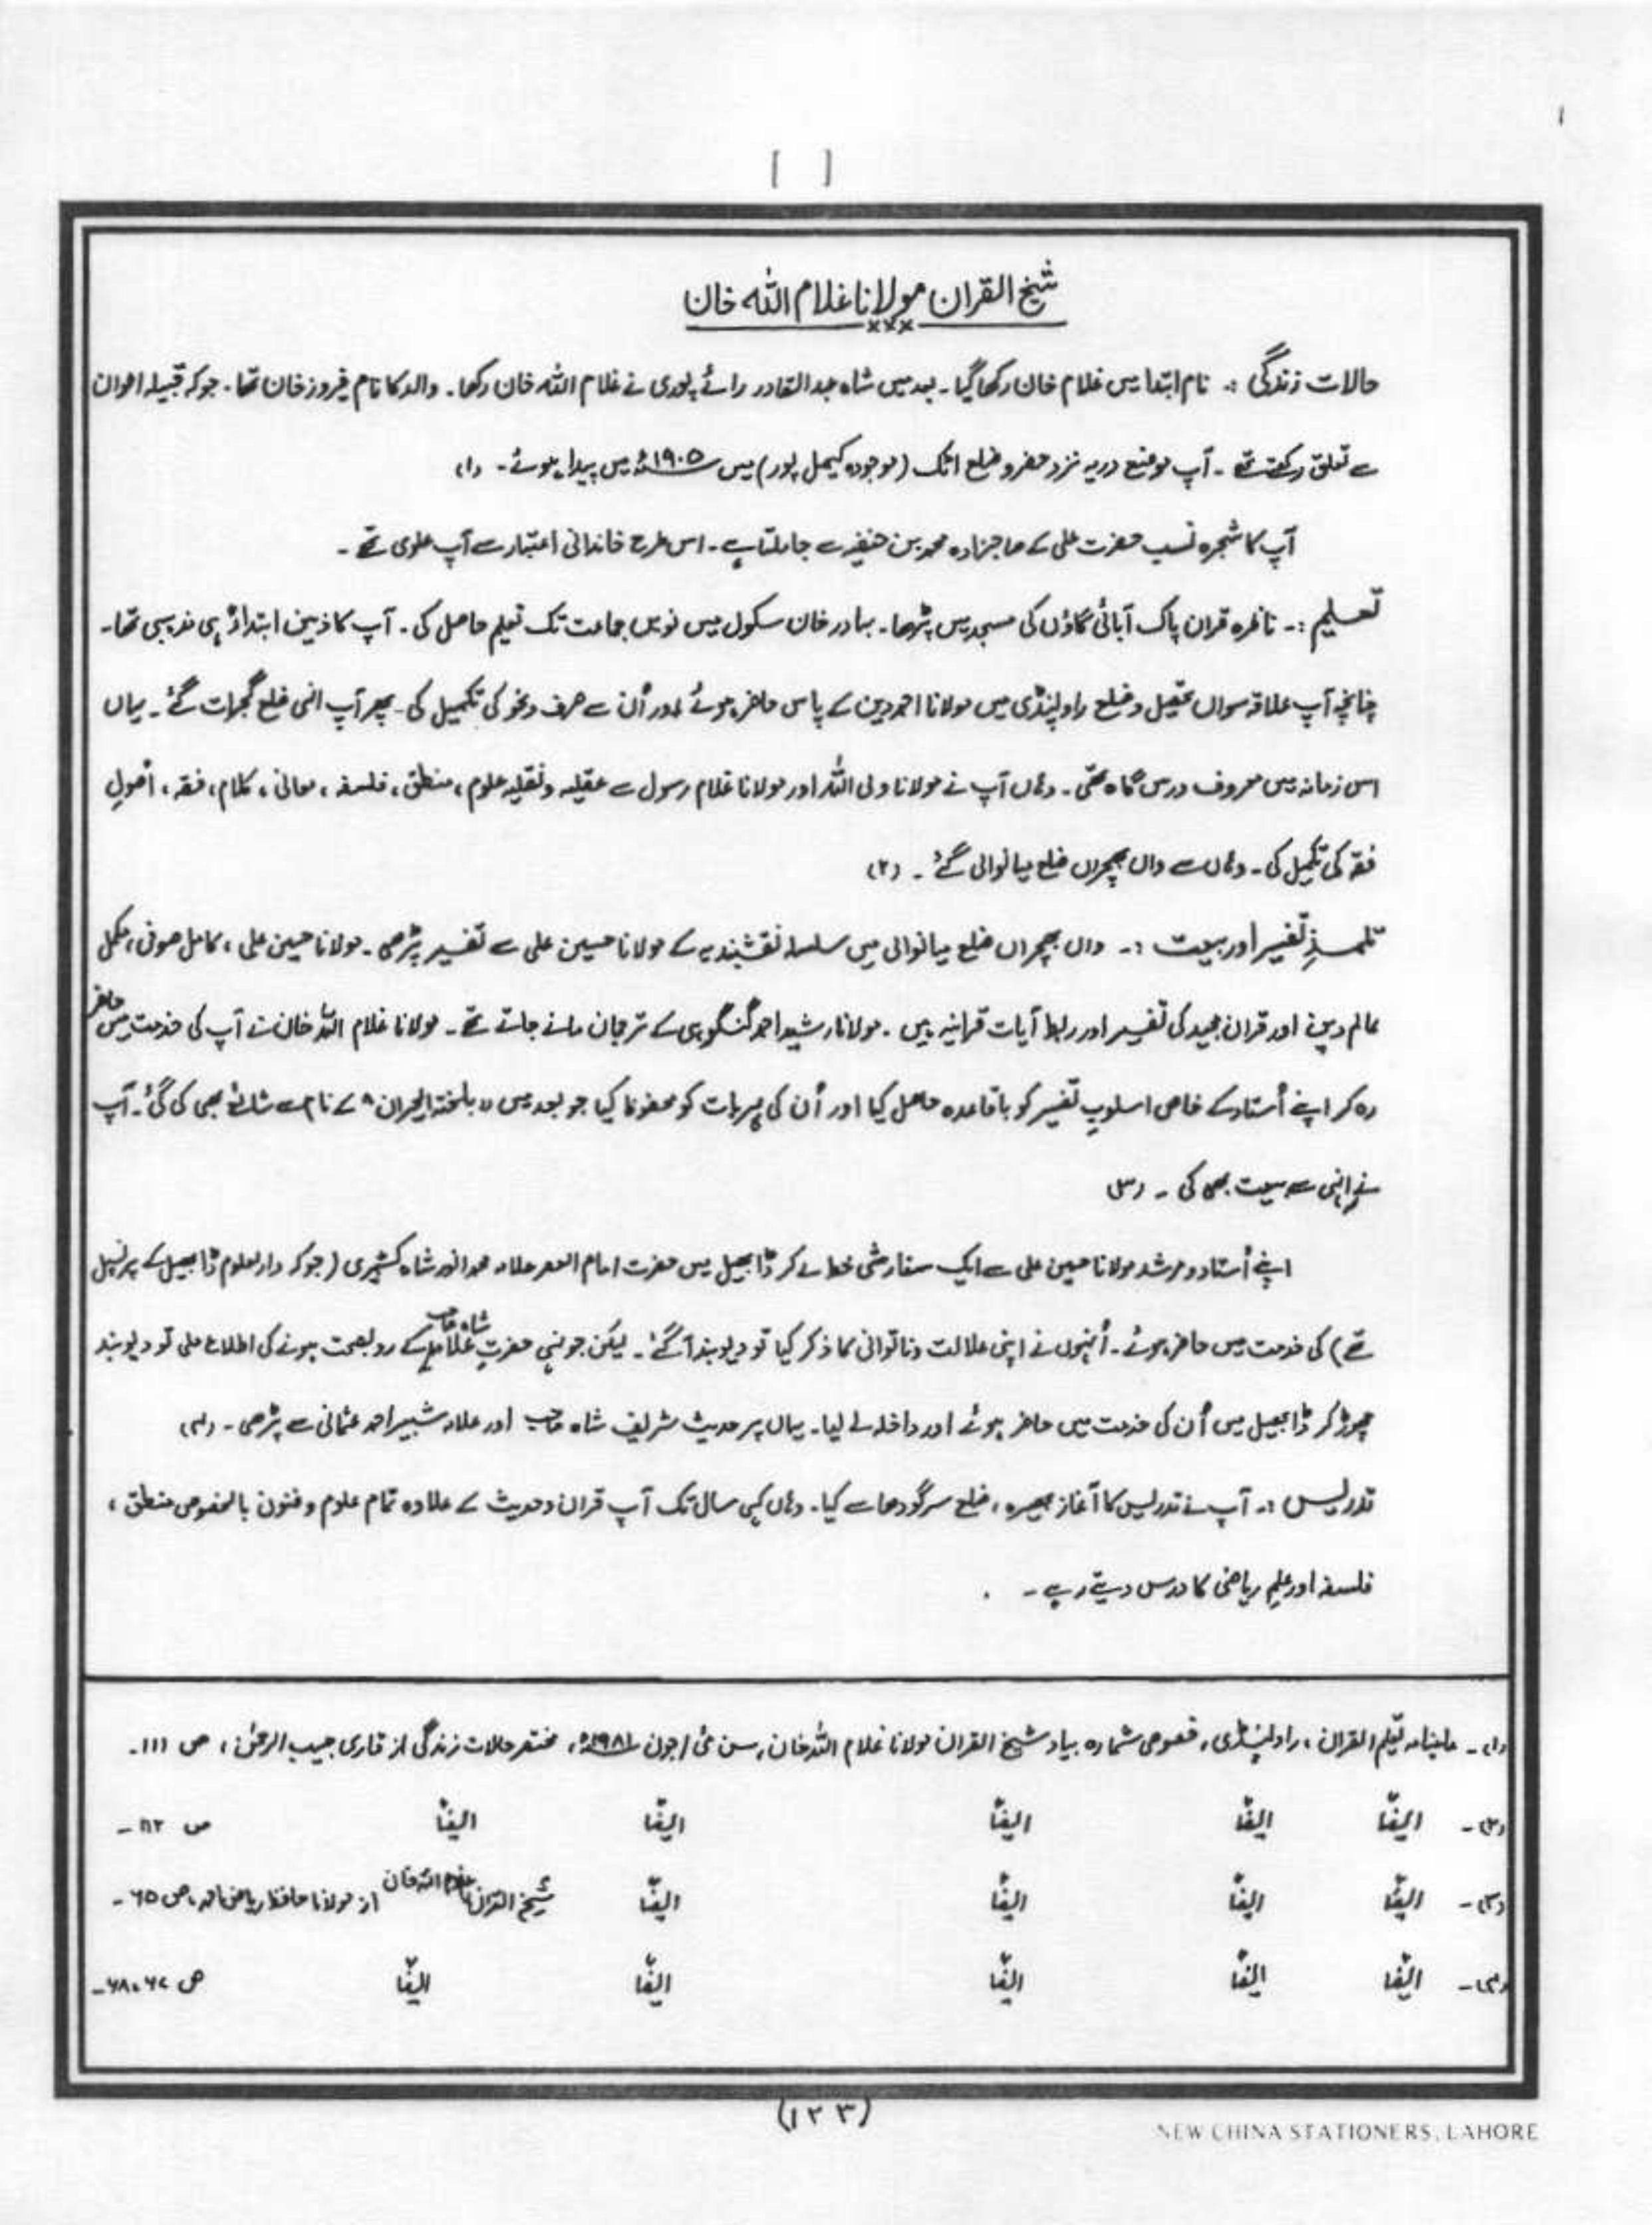 [ ]
شیخ القران مولانا غلام اللہ خان
×××
حالات زندگی :۔ نام ابتدا میں غلام خان رکھا گیا۔ بعد میں شاہ عبدالقادر رائے پوری نے غلام اللہ خان رکھا۔ والد کا نام فیروز خان تھا۔ جو کہ قبیلہ اعوان
سے تعلق رکھتے تھے۔ آپ موضع دریہ نزد حضرو ضلع اٹک (موجودہ کیمبل پور) میں ۱۹۰۵ء میں پیدا ہوئے۔ (۱)
آپ کا شجرہ نسب حضرت علی کے صاجزادہ محمد بن حنفیہ سے جا ملتا ہے۔ اس طرح خاندانی اعتبار سے آپ علوی تھے۔
تعلیم :۔ ناظرہ قران پاک آبائی گاؤں کی مسجد میں پڑھا۔ بہادر خان سکول میں نویں جماعت تک تعلیم حاصل کی۔ آپ کا ذہن ابتداءً ہی مذہبی تھا۔
چنانچہ آپ علاقہ سواں تحصیل و ضلع راولپنڈی میں مولانا احمد دین کے پاس حاضر ہوئے اور اُن سے صرف و نحو کی تکمیل کی۔ پھر آپ انہی ضلع گجرات گئے۔ یہاں
اس زمانہ میں معروف درس گاہ تھی۔ وہاں آپ نے مولانا ولی اللہ اور مولانا غلام رسول سے عقلیہ و نقلیہ علوم، منطق، فلسفہ، معانی، کلام، فقہ، اُصولِ
فقہ کی تکمیل کی۔ وہاں سے واں بھچراں ضلع میانوالی گئے۔ (۲)
تلمذِ تفسیر اور بیعت :۔ واں بھچراں ضلع میانوالی میں سلسلہ نقشبندیہ کے مولانا حسین علی سے تفسیر پڑھی۔ مولانا حسین علی، کامل صوفی، مکمل
عالم دین اور قران مجید کی تفسیر اور ربط آیات قرانیہ میں۔ مولانا رشید احمد گنگوہی کے ترجمان مانے جاتے تھے۔ مولانا غلام اللہ خان نے آپ کی خدمت میں حاضر
رہ کر اپنے اُستاد کے خاص اسلوبِ تفسیر کو باقاعدہ حاصل کیا اور اُن کی ہر بات کو محفوظ کیا جو بعد میں "بلغۃ الحیران" کے نام سے شائع بھی کی گئی۔ آپ
نے انہی سے بیعت بھی کی۔ (۳)
اپنے اُستاد و مرشد مولانا حسین علی سے ایک سفارشی خط لے کر ڈابھیل میں حضرت امام العصر علامہ محمد انور شاہ کشمیری (جو کہ دارالعلوم ڈابھیل کے پرنسپل
تھے) کی خدمت میں حاضر ہوئے۔ اُنہوں نے اپنی علالت و ناتوانی کا ذکر کیا تو دیوبند آ گئے۔ لیکن جونہی حضرت شاہ صاحب کے روبصحت ہونے کی اطلاع ملی تو دیوبند
چھوڑ کر ڈابھیل میں اُن کی خدمت میں حاضر ہوئے اور داخلہ لے لیا۔ یہاں پر حدیث شریف شاہ صاحب اور علامہ شبیر احمد عثمانی سے پڑھی۔ (۴)
تدریس :۔ آپ نے تدریس کا آغاز بھیرہ، ضلع سرگودھا سے کیا۔ وہاں کئی سال تک آپ قران و حدیث کے علاوہ تمام علوم و فنون بالخصوص منطق،
فلسفہ اور علمِ ریاضی کا درس دیتے رہے۔
(۱)۔ ماہنامہ تعلیم القران، راولپنڈی، خصوصی شمارہ بیاد شیخ القران مولانا غلام اللہ خان، سن مئی/جون ۱۹۸۱ء، مختصر حالات زندگی از قاری حبیب الرحمٰن، ص ۱۱۱۔
(۲)۔ ایضًا ایضًا ایضًا ایضًا ایضًا ص ۱۱۲۔
(۳)۔ ایضًا ایضًا ایضًا ایضًا شیخ القران مولانا غلام اللہ خان از مولانا حافظ ریاض احمد، ص ۶۵۔
(۴)۔ ایضًا ایضًا ایضًا ایضًا ایضًا ص ۶۷، ۶۸۔
(۱۲۳)
NEW CHINA STATIONERS, LAHORE